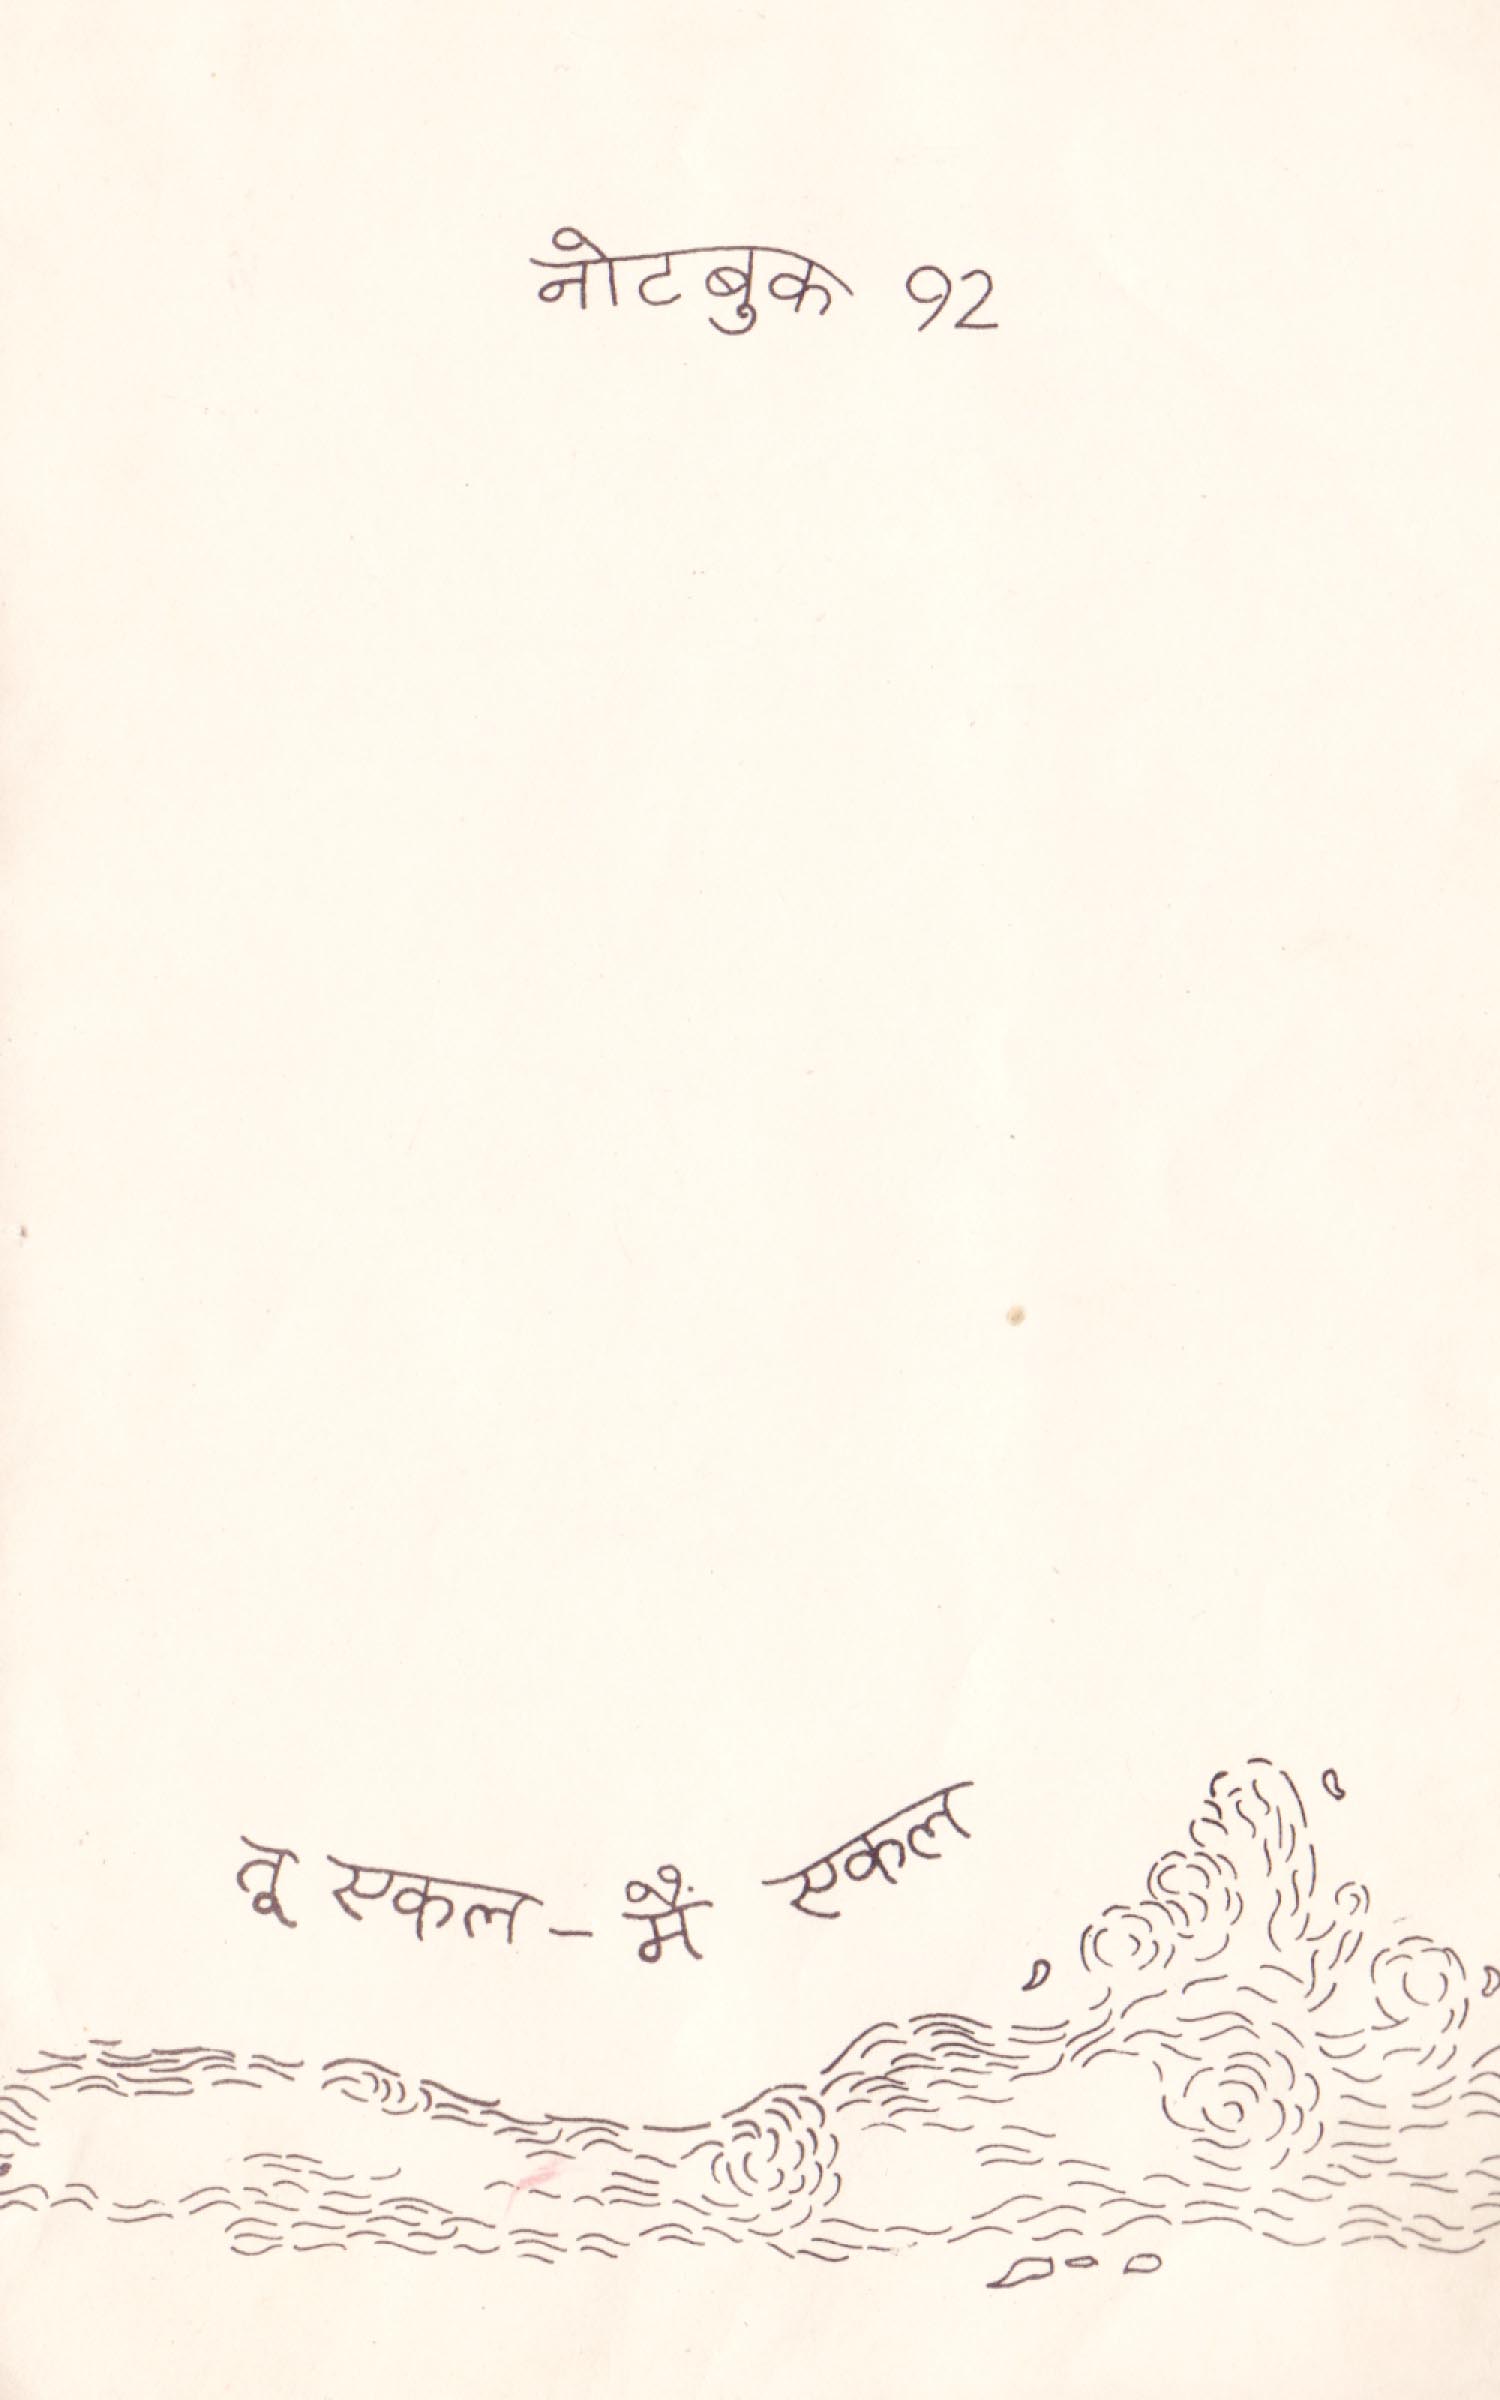 नोटबुक १२
तू एकल - मैं एकल